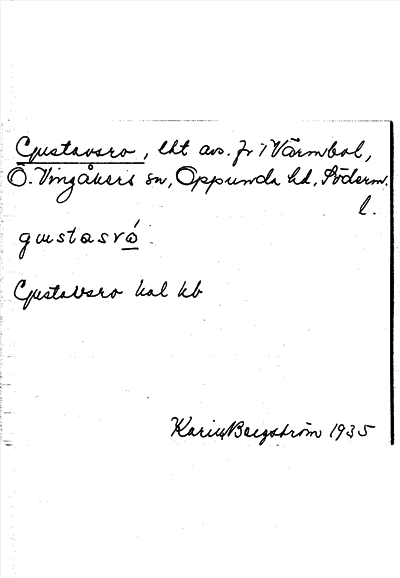 Gustavsro, lht avs. fr. 1 Värmbol,
Ö. Vingåkers sn, Oppunda hd, Söderm.
l.
gustasró
Gustavsro kal kb
Karin Bergström 1935